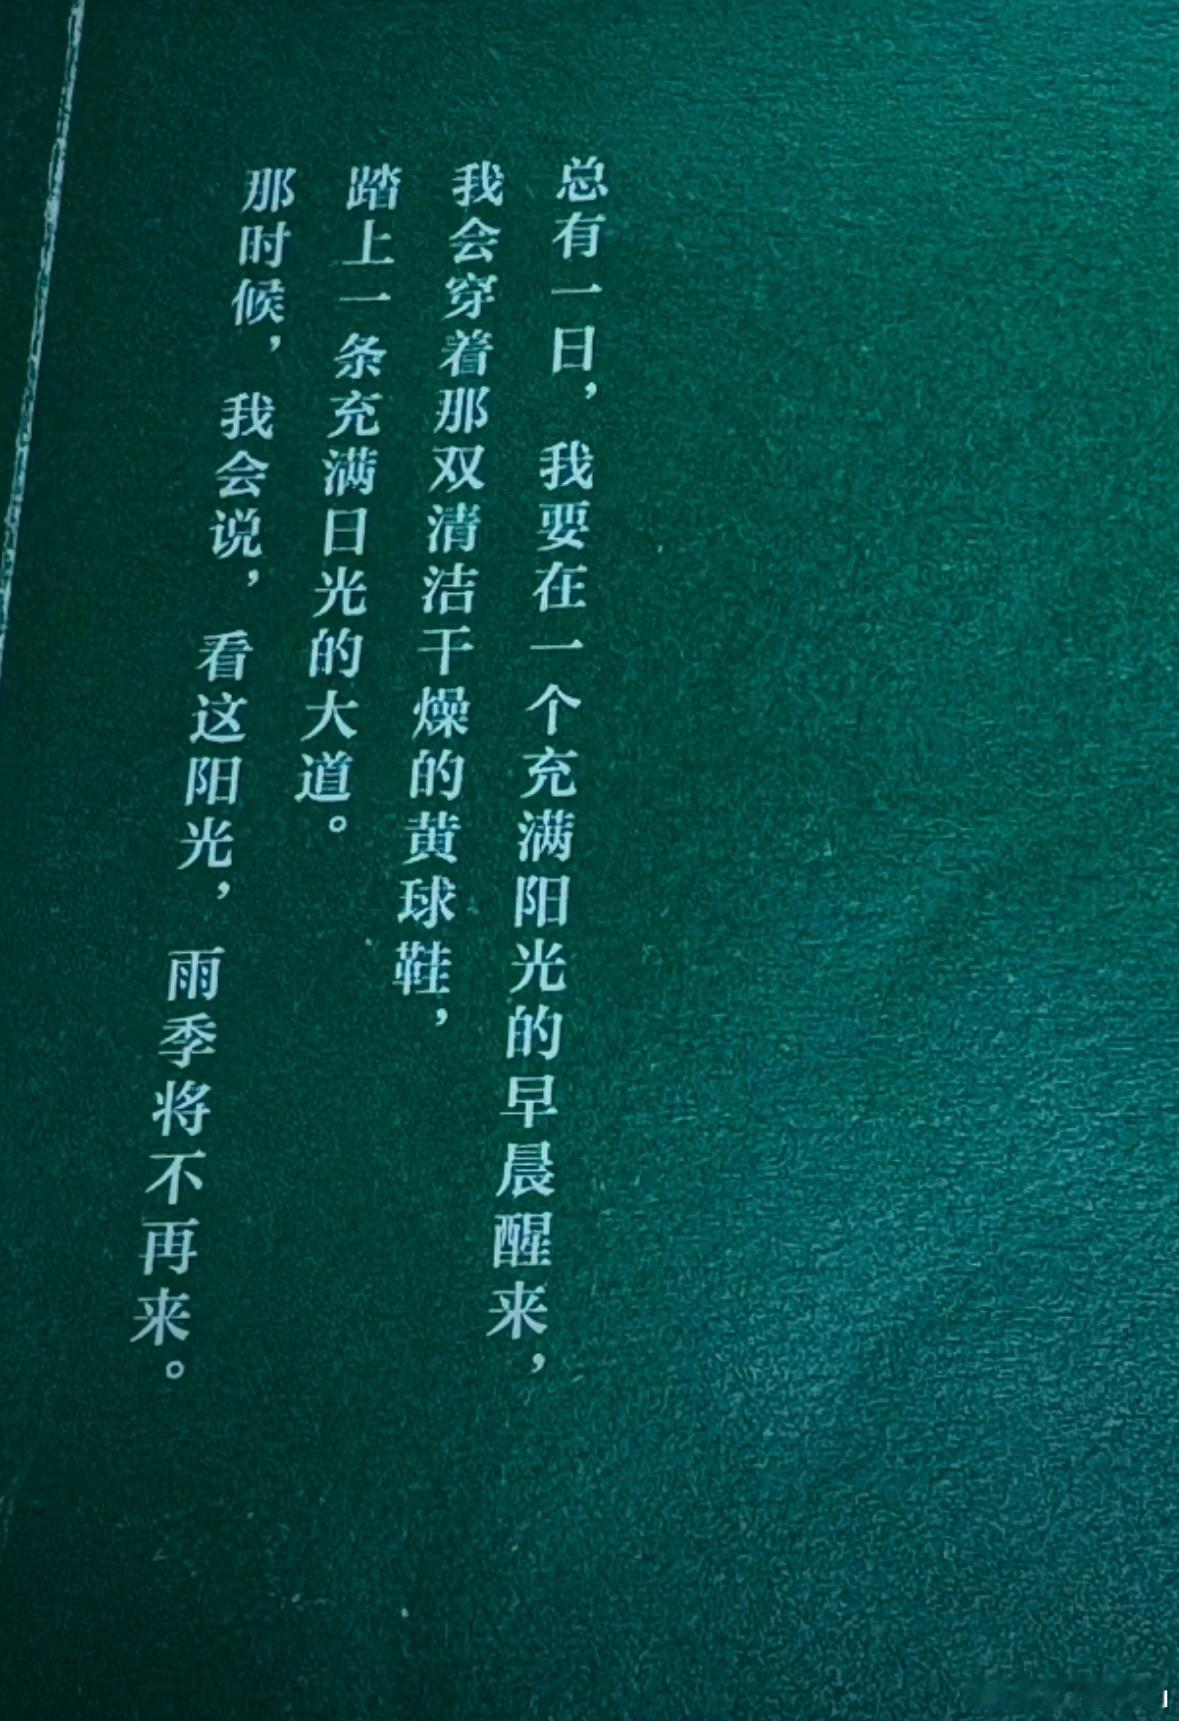 总有一日，我要在一个充满阳光的早晨醒来，
我会穿着那双清洁干燥的黄球鞋，
踏上一条充满日光的大道。
那时候，我会说，看这阳光，雨季将不再来。